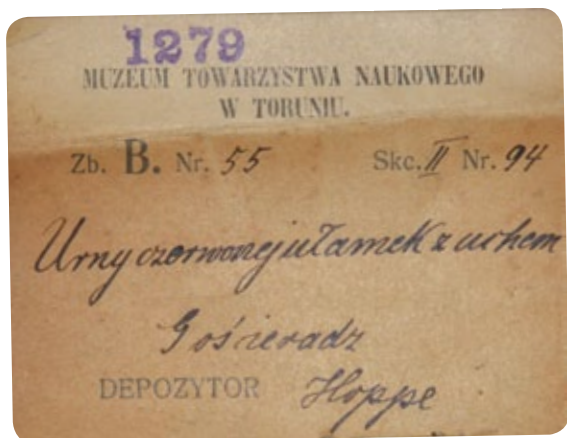 1279
MUZEUM TOWARZYSTWA NAUKOWEGO
W TORUNIU.
Zb. B. Nr. 55 Skc. II Nr. 94
Urny czerwonej ułamek z uchem
Gościeradz
DEPOZYTOR Hoppe